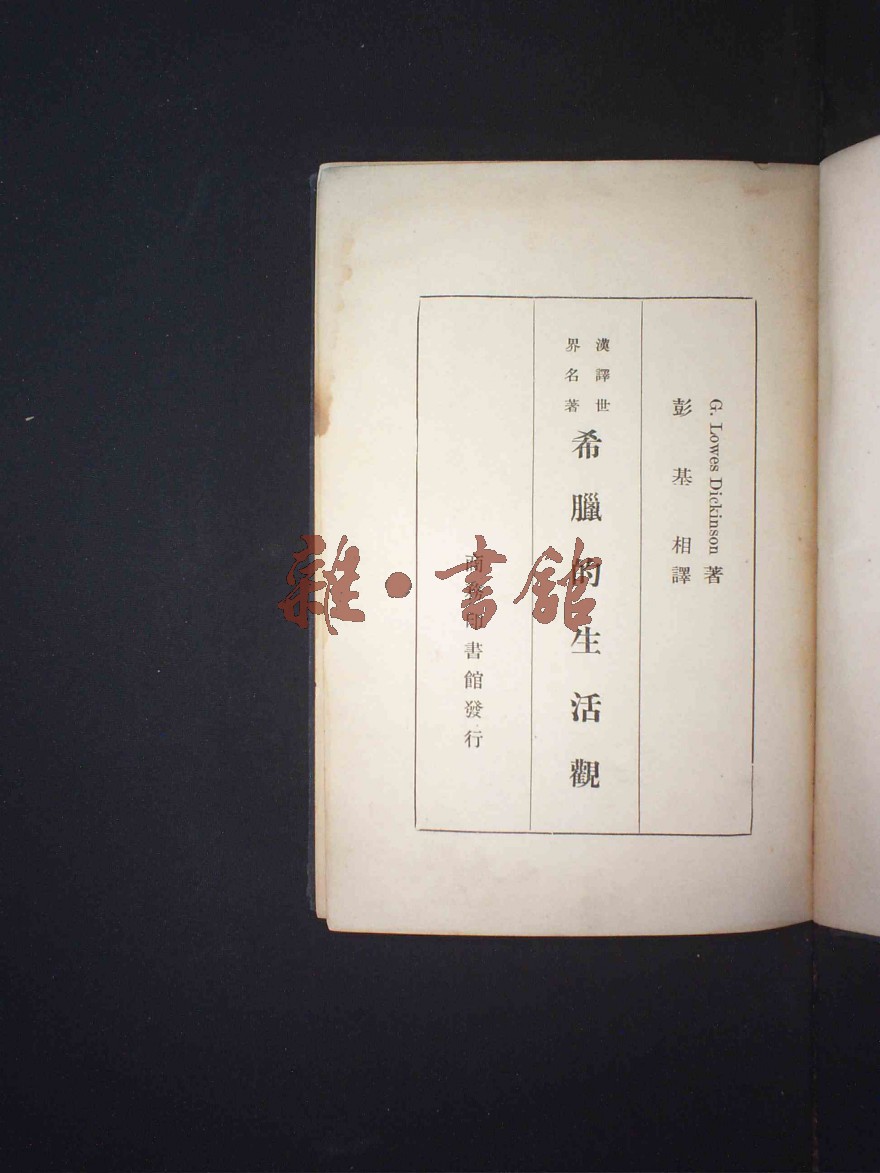 G. Lowes Dickinson 著
彭基相譯
漢譯世
界名著
希臘的生活觀
商務印書館發行
雜·書館